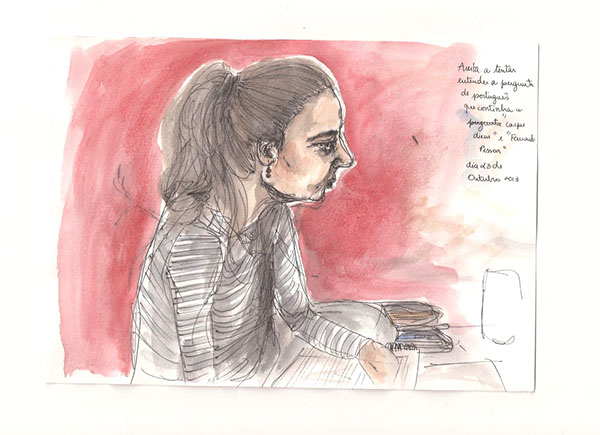 a tentar
entender a pergunta
de português
que continha a
"carpe
diem" e "Fernando
Pessoa"
dia 23 de
Outubro 2013